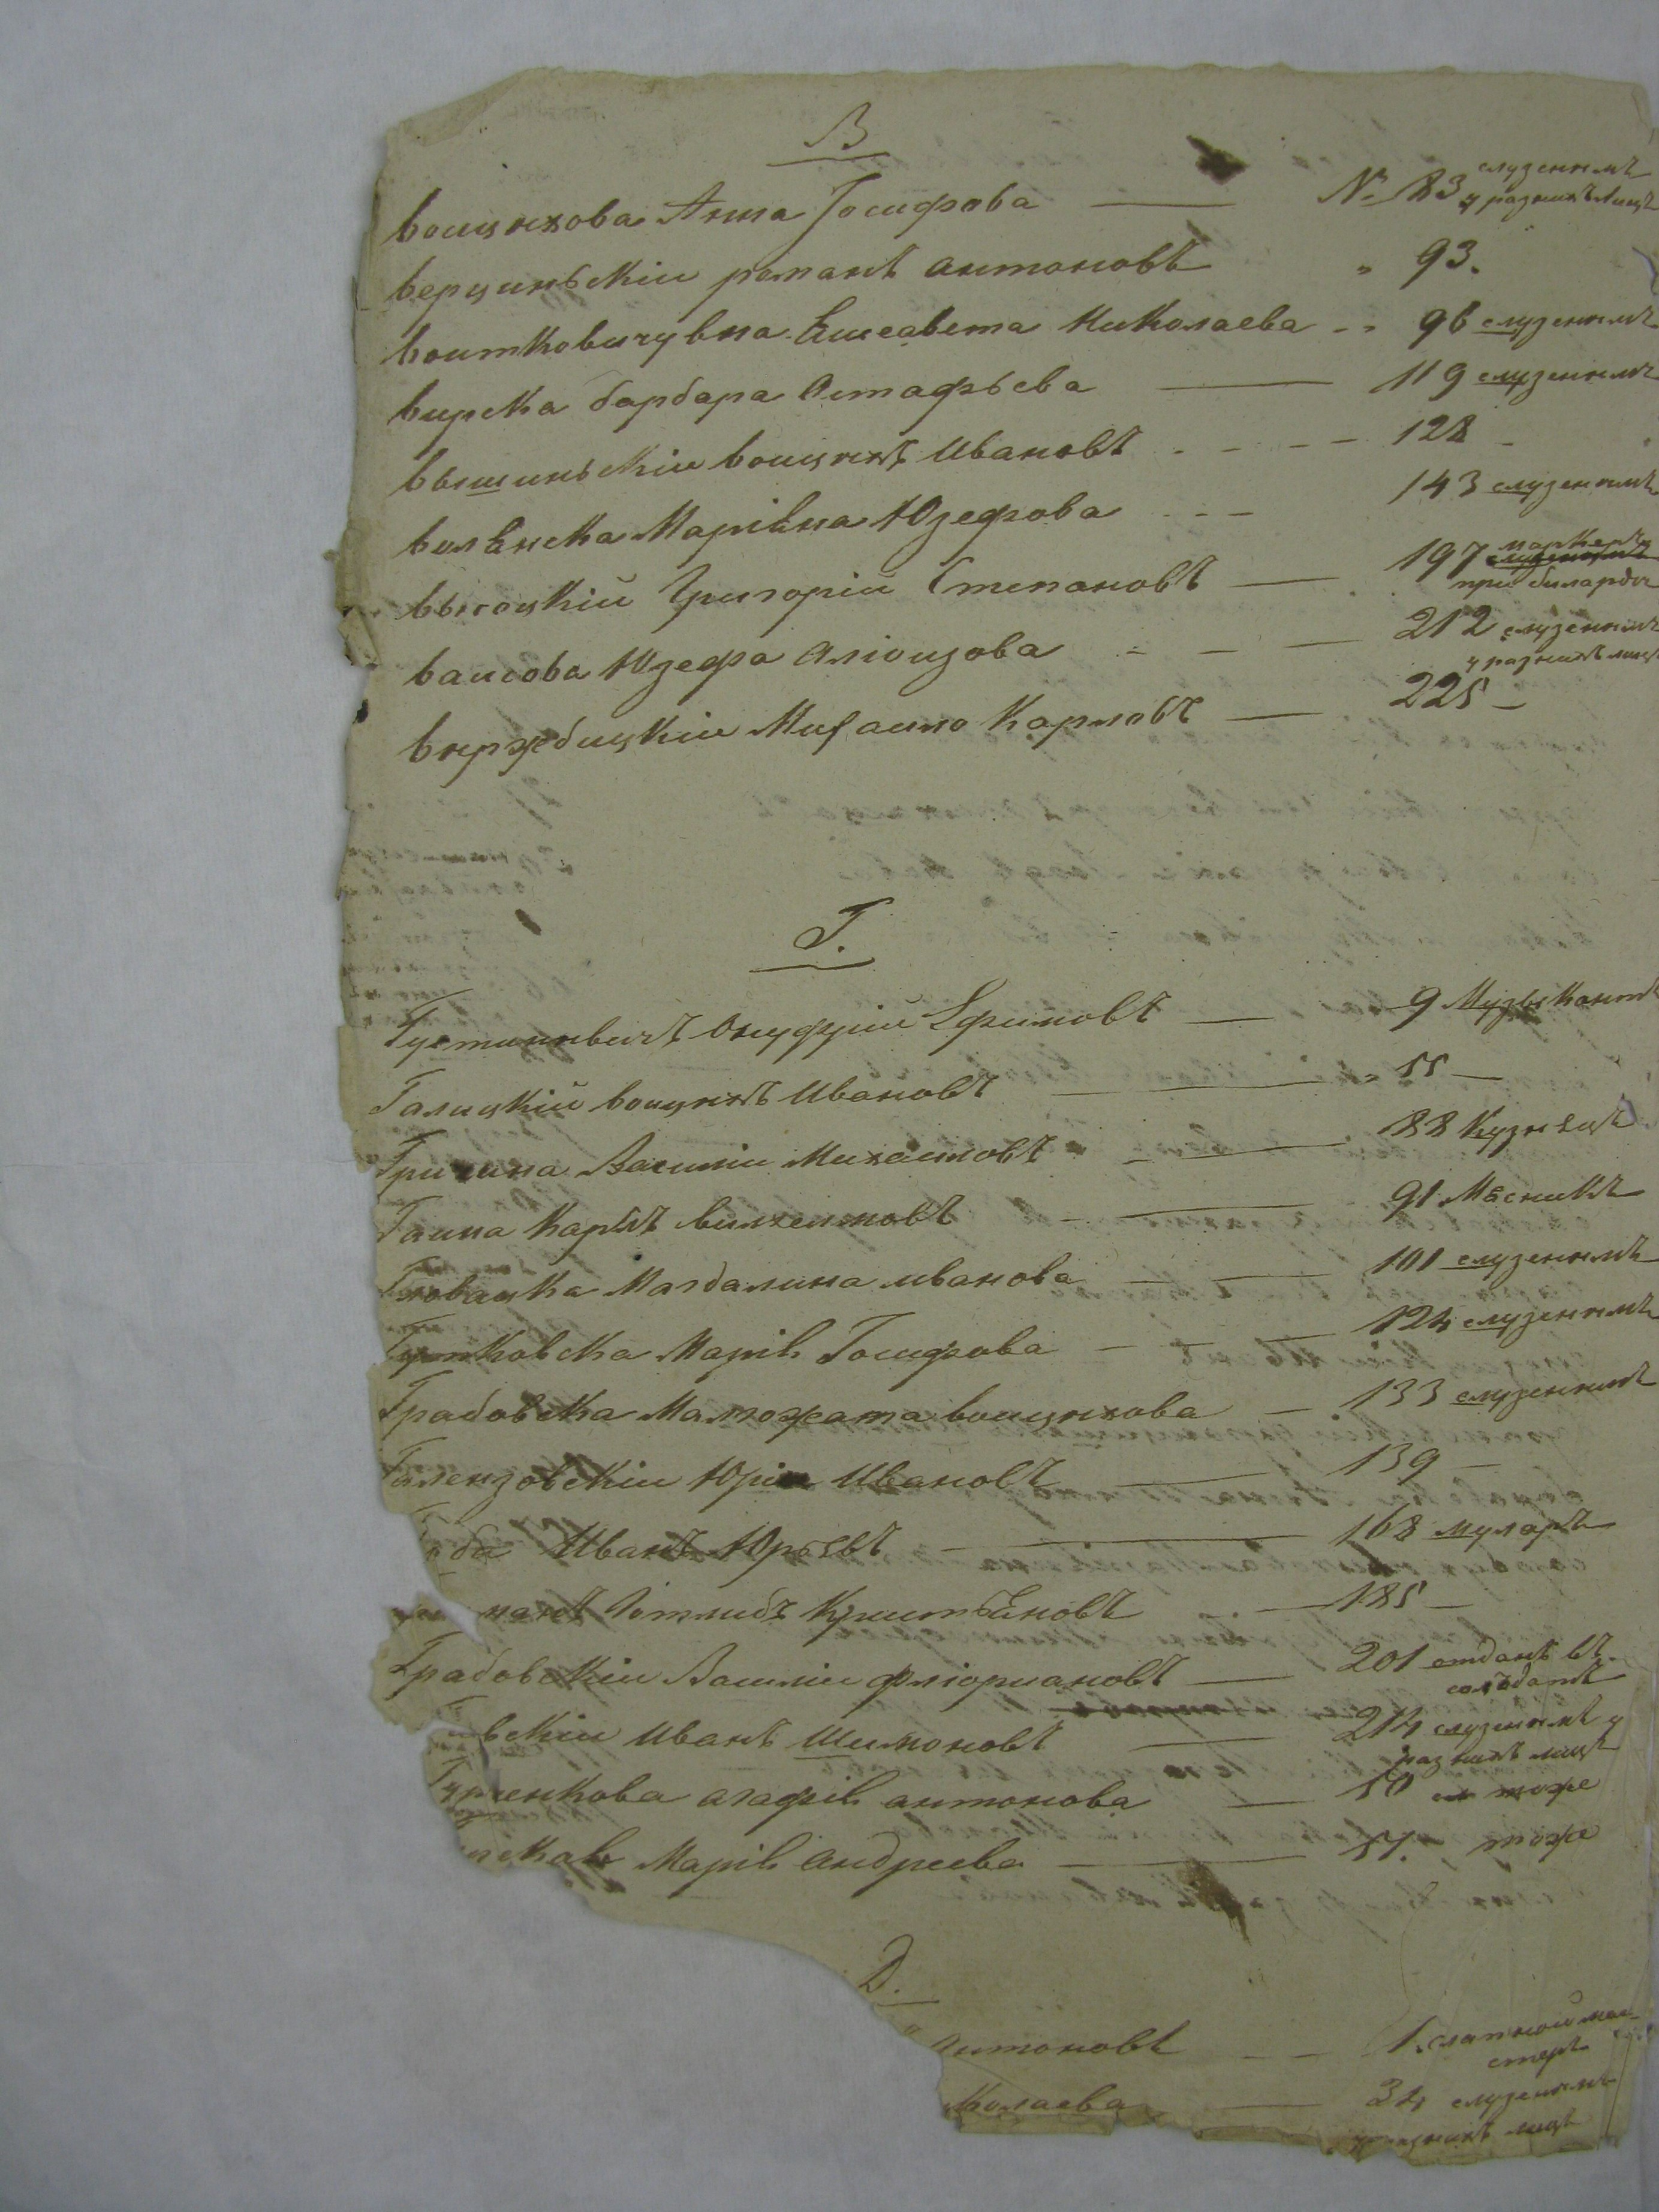 В
Воицѣхова Анна Іосифова № 83 служеніемъ
у разныхъ лицъ
Верциньскіи романъ антоновъ " 93.
Воитковичувна Елисавета Николаева 96 служеніемъ
Вирска барбара Остафьева 119 служеніемъ
Вышиньскіи Воицѣхъ Ивановъ 128
Волѣнска Маріѣна Юзефова 143 служеніемъ
Высоцкій Григоріи Степановъ 197 маркеръ
при билардѣ
Ваисова Юзефа Алоизова 212 служеніемъ
у разныхъ лицъ
Вержбицкіи Михаило Карловъ 225
Г.
Густиновичъ Онуфріи Ефимовъ 9 Музыкантъ
Галицкій Воицѣхъ Ивановъ " 55
Грицина Василіи Михаиловъ 88 Кузнецъ
Гаина Карлъ Вилхелмовъ 91 Мѣсникъ
Гловацка Магдалина иванова 101 служеніемъ
Маріѣ Іосифова 124 служеніемъ
Грабовска Малгожата Воицѣхова 133 служеніемъ
Галензовскіи Юріи Ивановъ 139
Иванъ Юрьевъ 168 муларъ
Готлибъ Криштьѣновъ 185
Грабовскіи Василіи Флоріановъ 201 отданъ въ
солдаты
вскіи Иванъ Шимоновъ 214 служеніемъ у
разныхъ лицъ
агафіѣ антонова 50 тоже
Маріѣ Андреева 51. тоже
Д.
Антоновъ 1.
стеръ
колаева 34 служеніемъ
у разныхъ лицъ